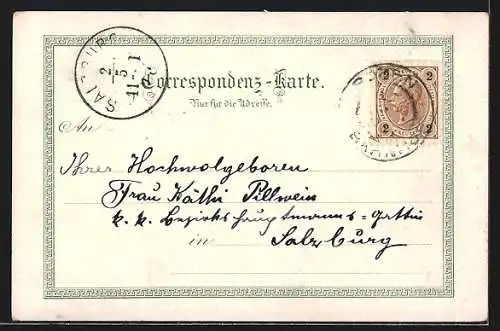 SALZBURG
2
5
11-1
Correspondenz-Karte.
Nur für die Adresse.
2 2
2 2
An
Ihrer Hochwolgeboren
Frau Käthi Pillwein
k. k. Bezirkshauptmanns-Gattin
in Salzburg